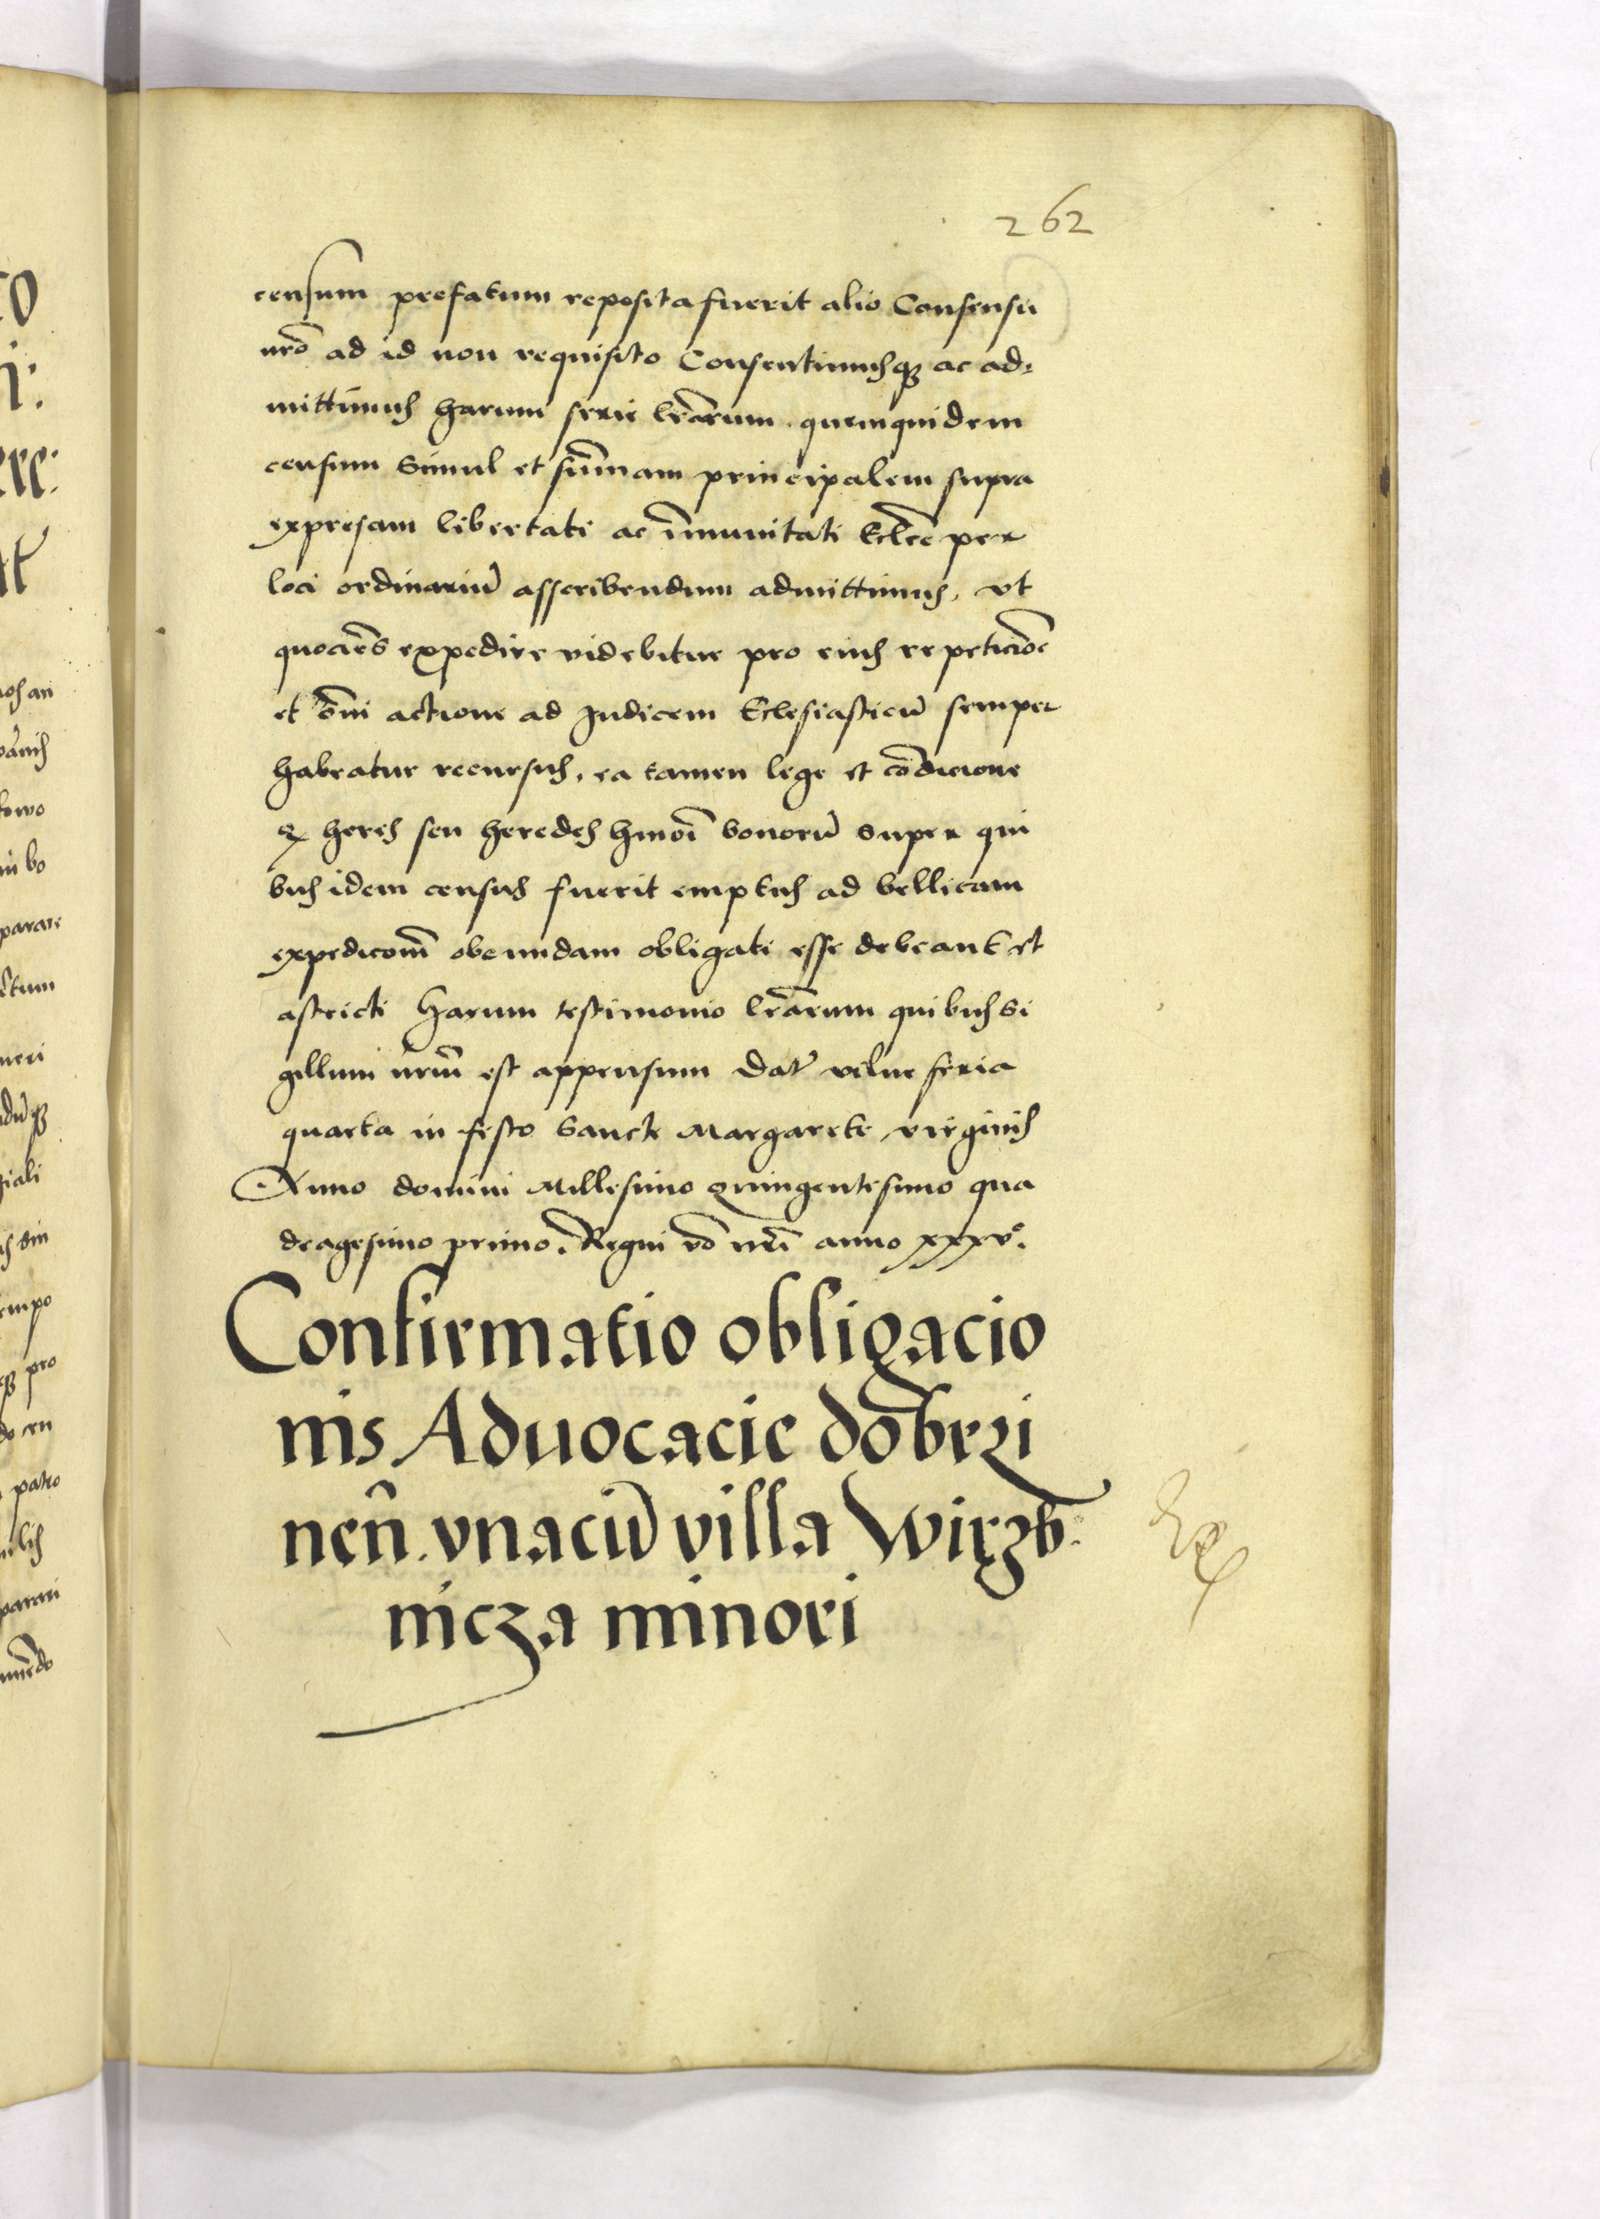 262
censum prefatum reposita fuerit alio Consensu
nr̄o ad id non requisito Consentimusq3 ac ad-
mittimus harum serie lr̄arum. quemquidem
censum simul et sūmam principalem supra
expresam libertati ac īmunitati Ecl̄ce per
loci ordinariū asscribendum admittimus, vt
quociēs expedire videbitur pro eius repeticiōe
et ōni actione ad Judicem Eclesiasticū semper
habeatur recursus, ea tamen lege et cōdicione
q heres seu heredes hmōi bonorū super qui
bus idem census fuerit emptus ad bellicam
expedicōnē obeundam obligati esse debeant et
astricti Harum testimonio lr̄arum quibus si
gillum nr̄m est appensum Dat̄ vilne feria
quarta in festo Sancte Margarete virginis
Anno domini Millesimo quingentesimo qua
dragesimo primo. Regni v̄o nr̄i anno xxxv°.
Confirmatio obligacio
nis Aduocacie dobrzi
nen̄. vnacū villa Wirzb
nicza minori